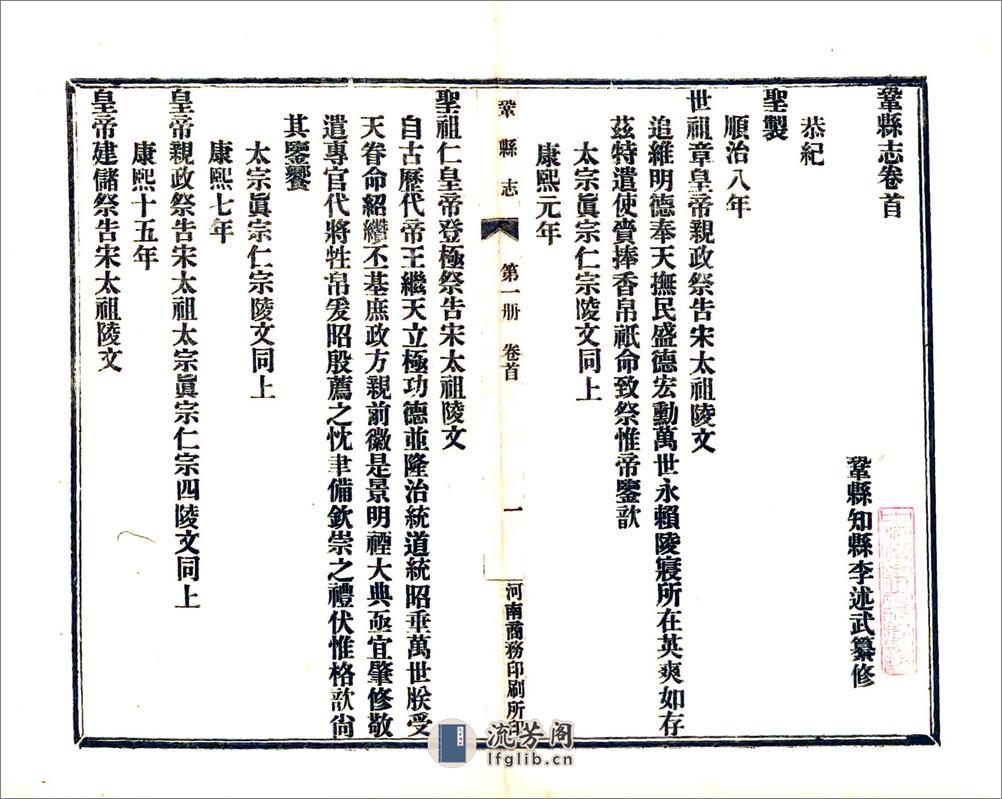 鞏縣志卷首
鞏縣知縣李述武纂修
恭紀
聖製
順治八年
世祖章皇帝親政祭告宋太祖陵文
追維明德奉天撫民盛德宏勳萬世永賴陵寢所在英爽如存
茲特遣使賫捧香帛祇命致祭惟帝鑒歆
太宗眞宗仁宗陵文同上
康熙元年
鞏縣志 第一册 卷首 一 河南商務印刷所印
聖祖仁皇帝登極祭告宋太祖陵文
自古歷代帝王繼天立極功德並隆治統道統昭垂萬世朕受
天眷命紹纘丕基庶政方親前徽是景明禋大典亟宜肇修敬
遣專官代將牲帛爰昭殷薦之忱聿備欽崇之禮伏惟格歆尙
其鑒饗
太宗眞宗仁宗陵文同上
康熙七年
皇帝親政祭告宋太祖太宗眞宗仁宗四陵文同上
康熙十五年
皇帝建儲祭告宋太祖陵文
流芳阁
lfglib.cn